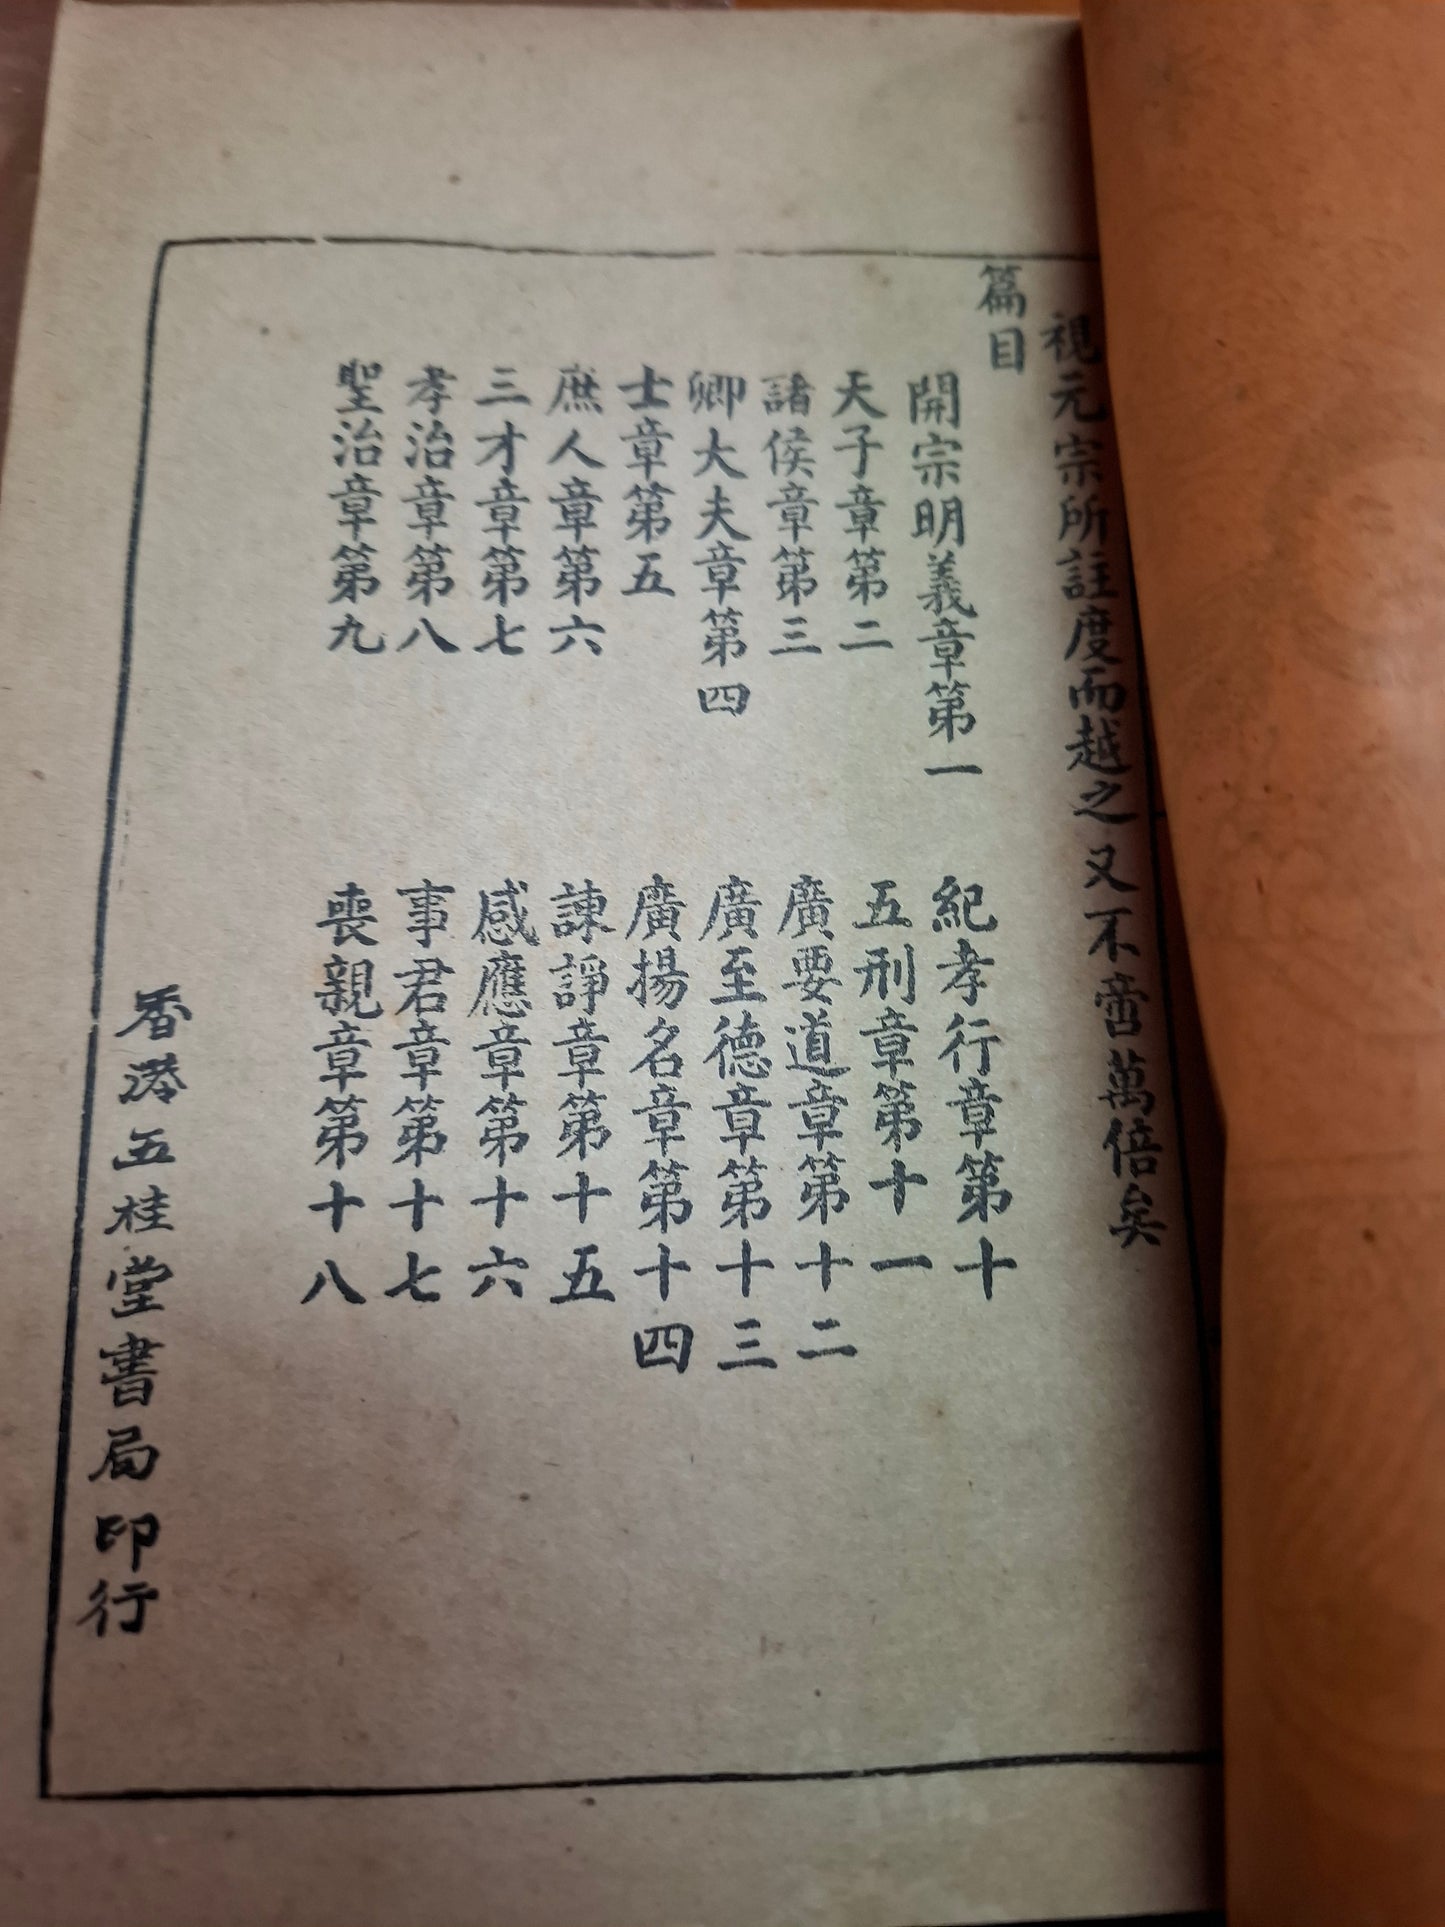 視元宗所註度而越之又不啻萬倍矣
篇目
開宗明義章第一
天子章第二
諸侯章第三
卿大夫章第四
士章第五
庶人章第六
三才章第七
孝治章第八
聖治章第九
紀孝行章第十
五刑章第十一
廣要道章第十二
廣至德章第十三
廣揚名章第十四
諫諍章第十五
感應章第十六
事君章第十七
喪親章第十八
香港五桂堂書局印行